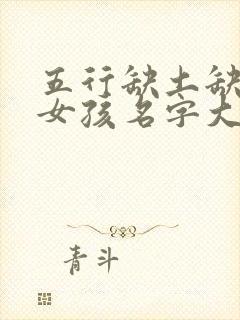 五行缺土缺
女孩名字大
青斗